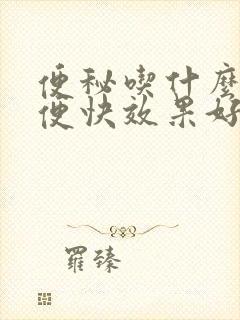 便秘喫什麼
便快效果好
羅臻